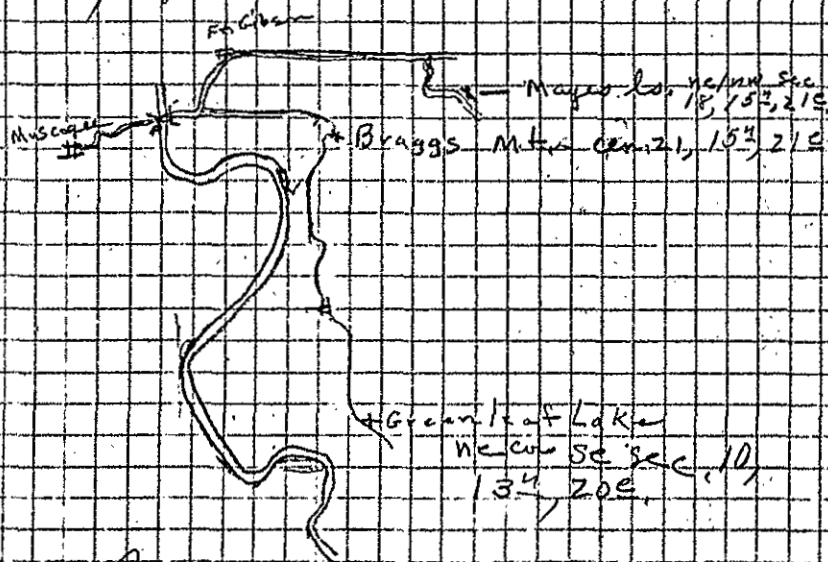 Ft Gibson
Mayes Co. ne/nw sec
18, 15n, 21e
Muscogee
Braggs Mt. cen 21, 15n, 21e
Greenleaf Lake
ne cor se sec. 10,
13n, 20e.